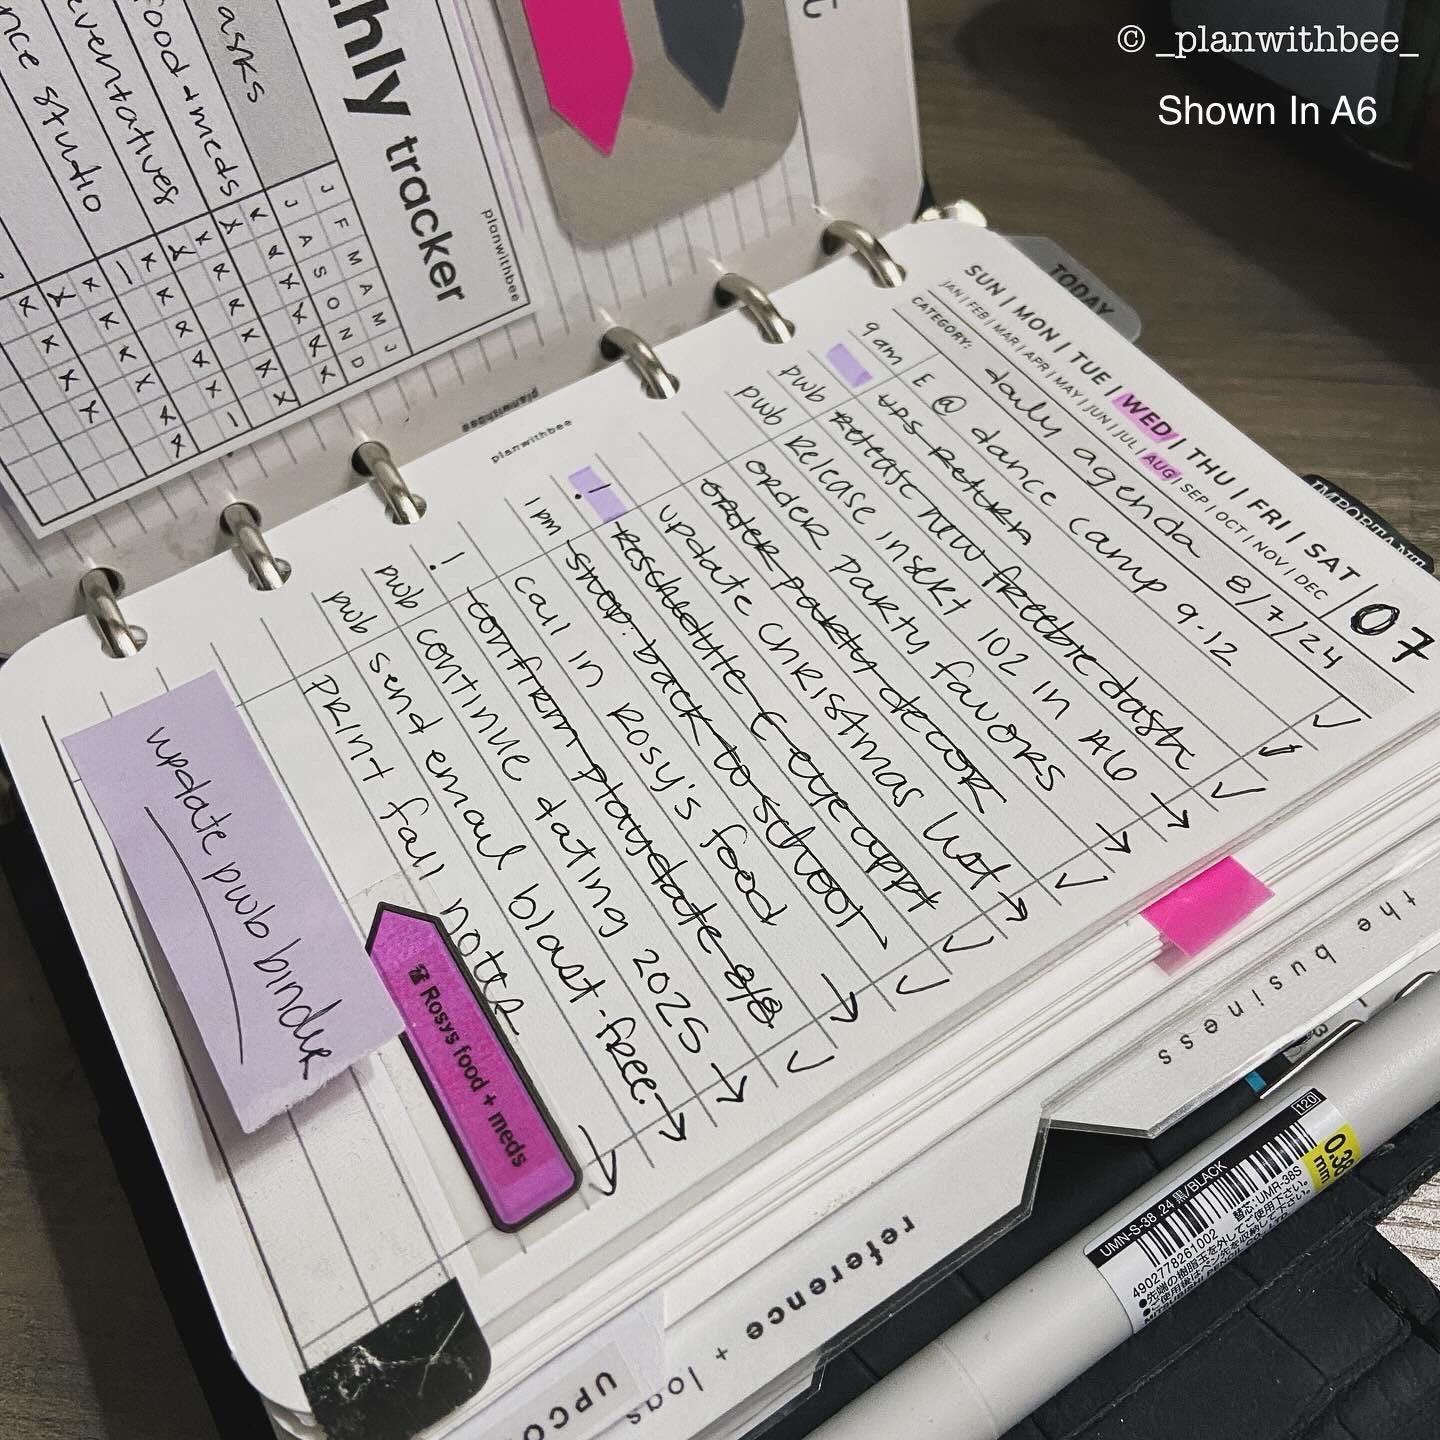 © _planwithbee_
Shown In A6
hly tracker
planwithbee
J F M A M J
J A S O N D
asks
food + meds
eventatives
nce studio
TODAY
IMPORTANT
SUN | MON | TUE | WED | THU | FRI | SAT
JAN | FEB | MAR | APR | MAY | JUN | JUL | AUG | SEP | OCT | NOV | DEC
07
CATEGORY: daily agenda 8/7/24
9 am E @ dance camp 9-12 ✓
UPS return ✓
pwb release new freebie dash ✓
pwb release insert 102 in A6 →
order party favors →
order party decor ✓
update christmas list →
! reschedule E eye appt ✓
1 pm shop: back to school ✓
call in Rosy's food →
! confirm playdate 8/8 ✓
pwb continue dating 2025 →
pwb send email blast - free. →
print fall note →
planwithbee
update pwb binder
Rosys food + meds
the business
reference + logs
UPCO
UMN-S-38 .24 黒/BLACK
[120]
0.38 mm
替芯:UMR-38S
4902778261002